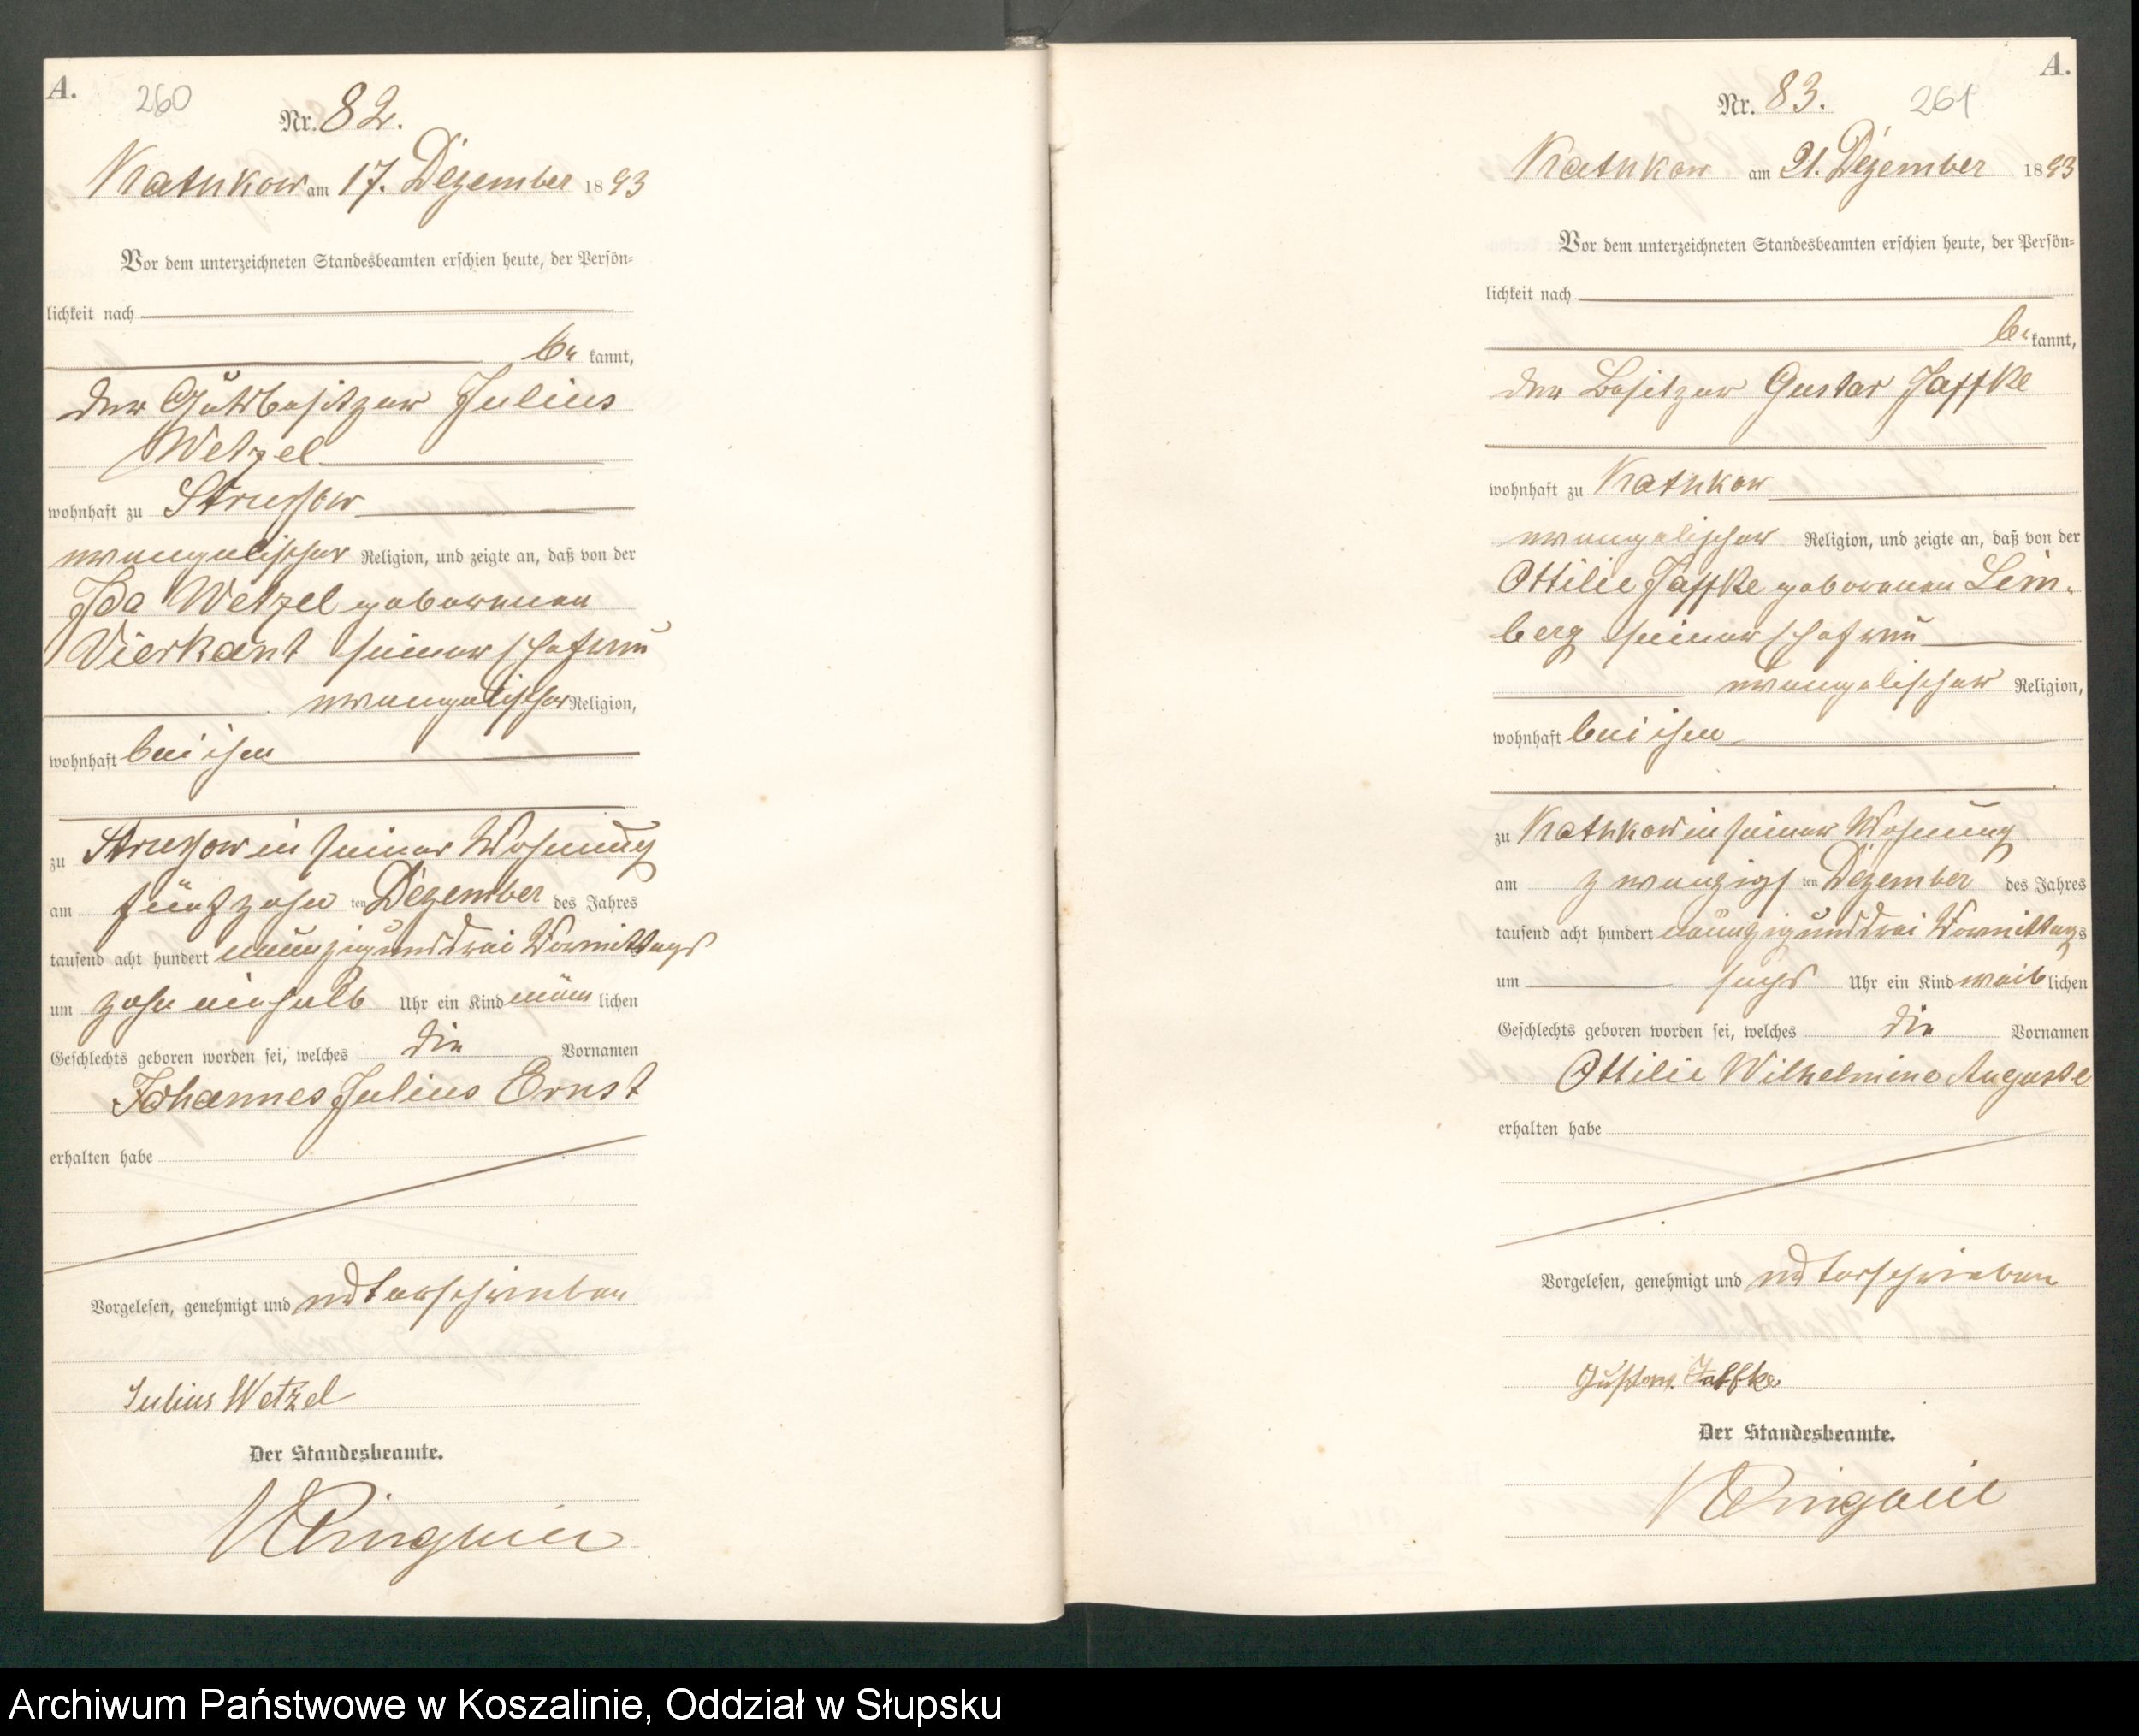 A.
260
Nr. 82.
Kathkow am 17. Dezember 1893
Vor dem unterzeichneten Standesbeamten erschien heute, der Persön-
lichkeit nach
be kannt,
der Gutsbesitzer Julius
Wetzel
wohnhaft zu Strussow
evangelischer Religion, und zeigte an, daß von der
Ida Wetzel geborenen
Vierkant seiner Ehefrau
evangelischer Religion,
wohnhaft bei ihm
zu Strussow in seiner Wohnung
am fünfzehn ten Dezember des Jahres
tausend acht hundert neunzig und drei Vormittags
um zehn einhalb Uhr ein Kind männ lichen
Geschlechts geboren worden sei, welches die Vornamen
Johannes Julius Ernst
erhalten habe
Vorgelesen, genehmigt und unterschrieben
Julius Wetzel
Der Standesbeamte.
A.
Nr. 83. 261
Kathkow am 21. Dezember 1893
Vor dem unterzeichneten Standesbeamten erschien heute, der Persön-
lichkeit nach
be kannt,
der Besitzer Gustav Jaffke
wohnhaft zu Kathkow
evangelischer Religion, und zeigte an, daß von der
Ottilie Jaffke geborenen Lem-
berg seiner Ehefrau
evangelischer Religion,
wohnhaft bei ihm
zu Kathkow in seiner Wohnung
am zwanzigs ten Dezember des Jahres
tausend acht hundert neunzig und drei Vormittags
um sechs Uhr ein Kind weib lichen
Geschlechts geboren worden sei, welches die Vornamen
Ottilie Wilhelmine Auguste
erhalten habe
Vorgelesen, genehmigt und unterschrieben
Gustav Jaffke
Der Standesbeamte.
Archiwum Państwowe w Koszalinie, Oddział w Słupsku